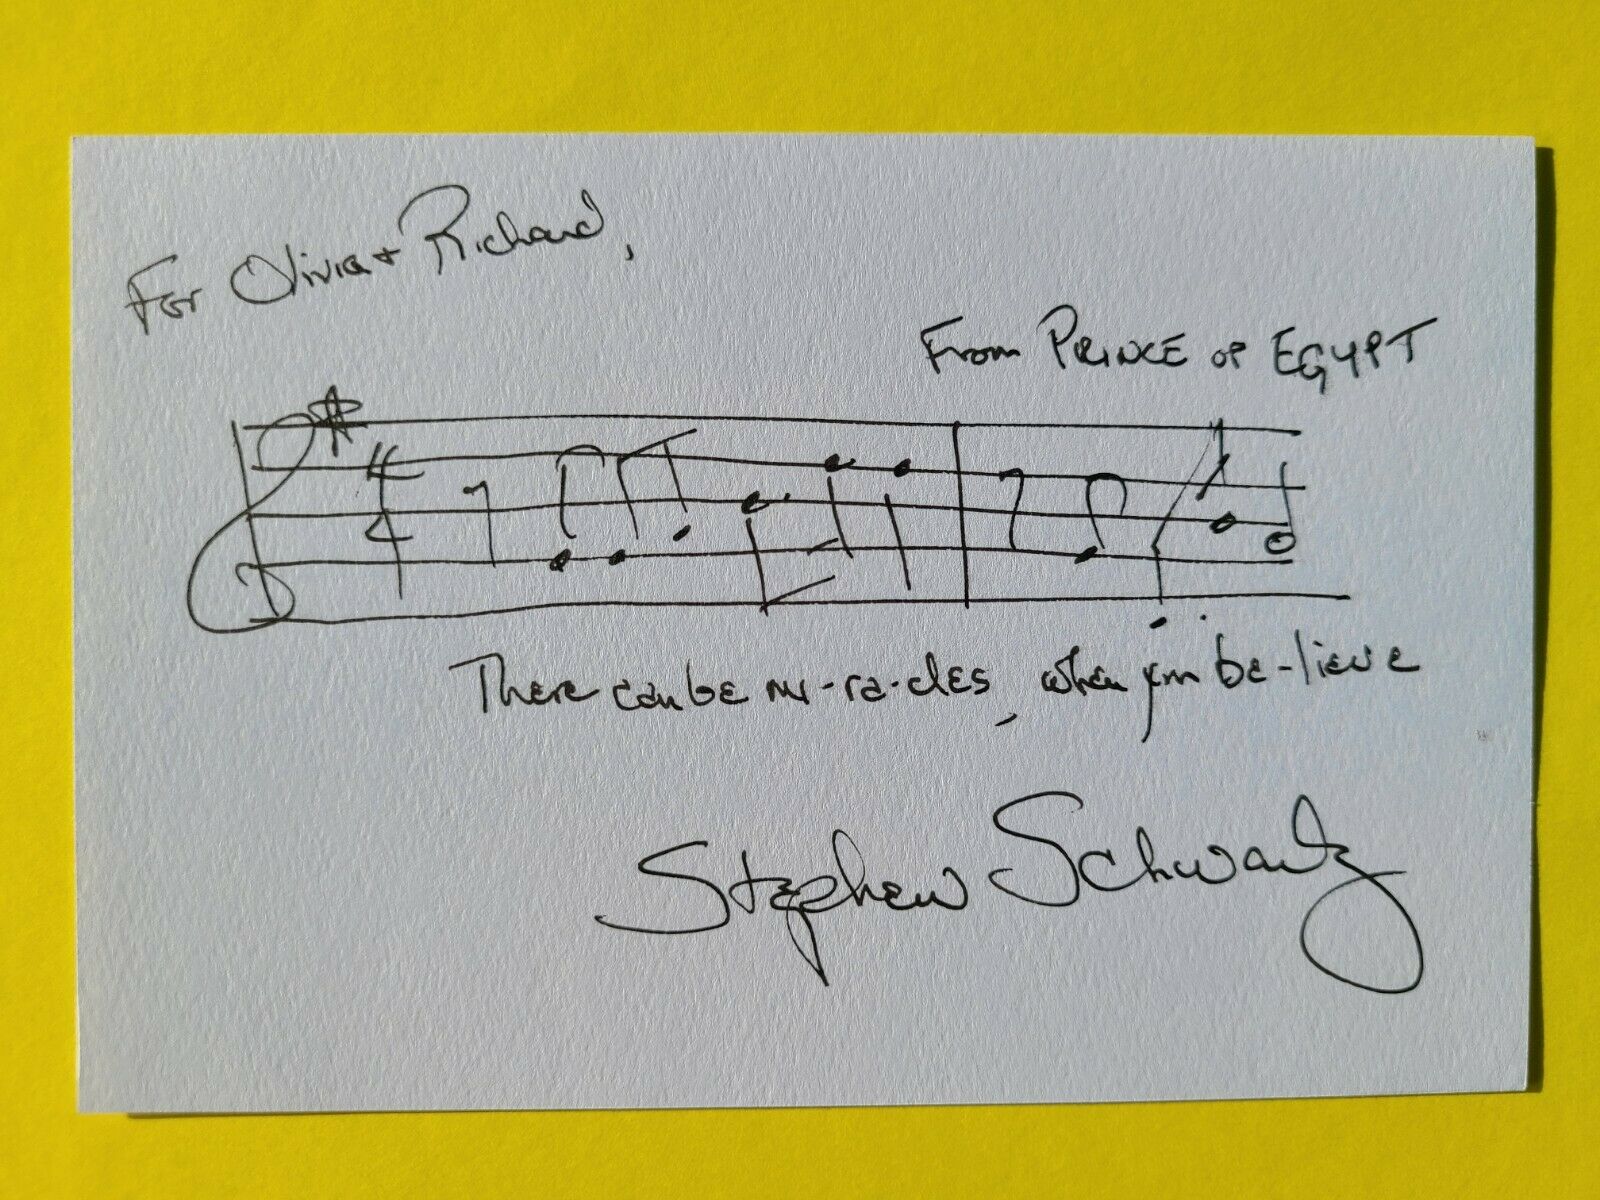 For Olivia + Richard,
From PRINCE OF EGYPT
There can be mi-ra-cles, when you be-lieve
Stephen Schwartz